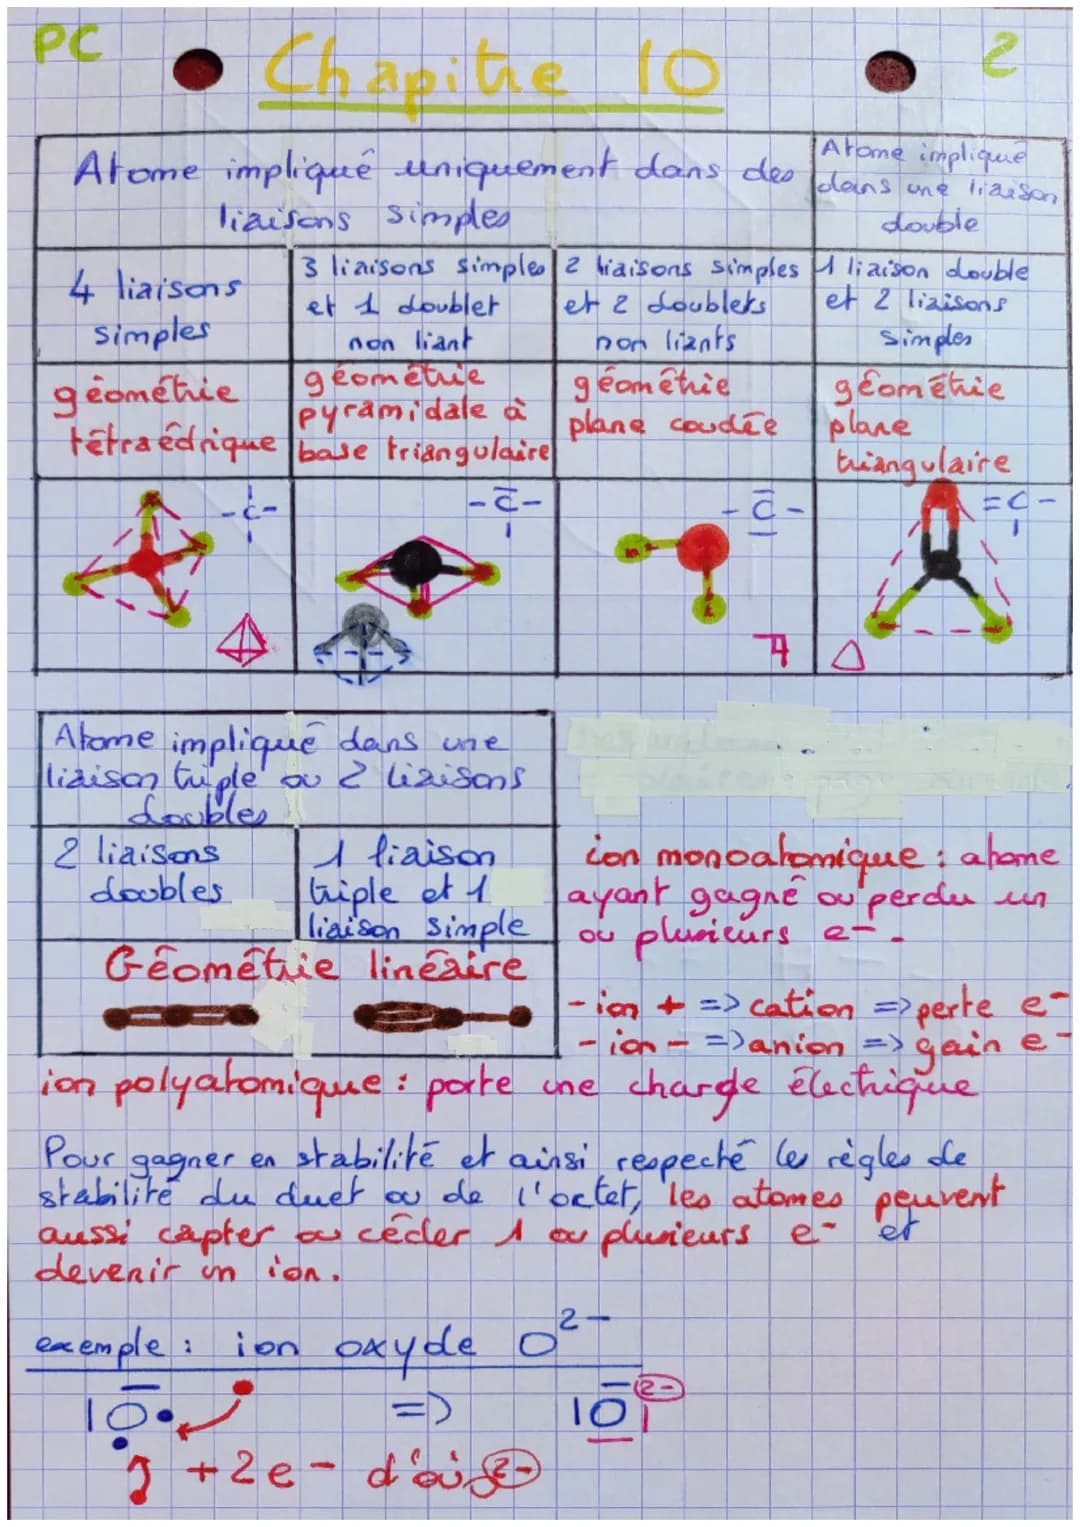 PC
Chapitre 10
2
Atome impliqué uniquement dans des
liaisons simples
Atome impliqué
dans une liaison
double
4 liaisons
simples
3 liaisons simples
et 1 doublet
non liant
2 liaisons simples
et 2 doublets
non liants
1 liaison double
et 2 liaisons
simples
géométrie
tétraédrique
géométrie
pyramidale à
base triangulaire
géométrie
plane coudée
géométrie
plane
triangulaire
-C-
-C-
-C-
=C-
Atome impliqué dans une
liaison triple ou 2 liaisons
doubles
2 liaisons
doubles
1 liaison
triple et 1
liaison simple
Géométrie linéaire
ion monoatomique : atome
ayant gagné ou perdu un
ou plusieurs e-.
- ion + => cation => perte e-
- ion - => anion => gain e-
ion polyatomique : porte une charge électrique
Pour gagner en stabilité et ainsi respecté les règles de
stabilité du duet ou de l'octet, les atomes peuvent
aussi capter ou céder 1 ou plusieurs e- et
devenir un ion.
exemple : ion oxyde O²⁻
|O• => |O| 2-
+2e- d'où 2-